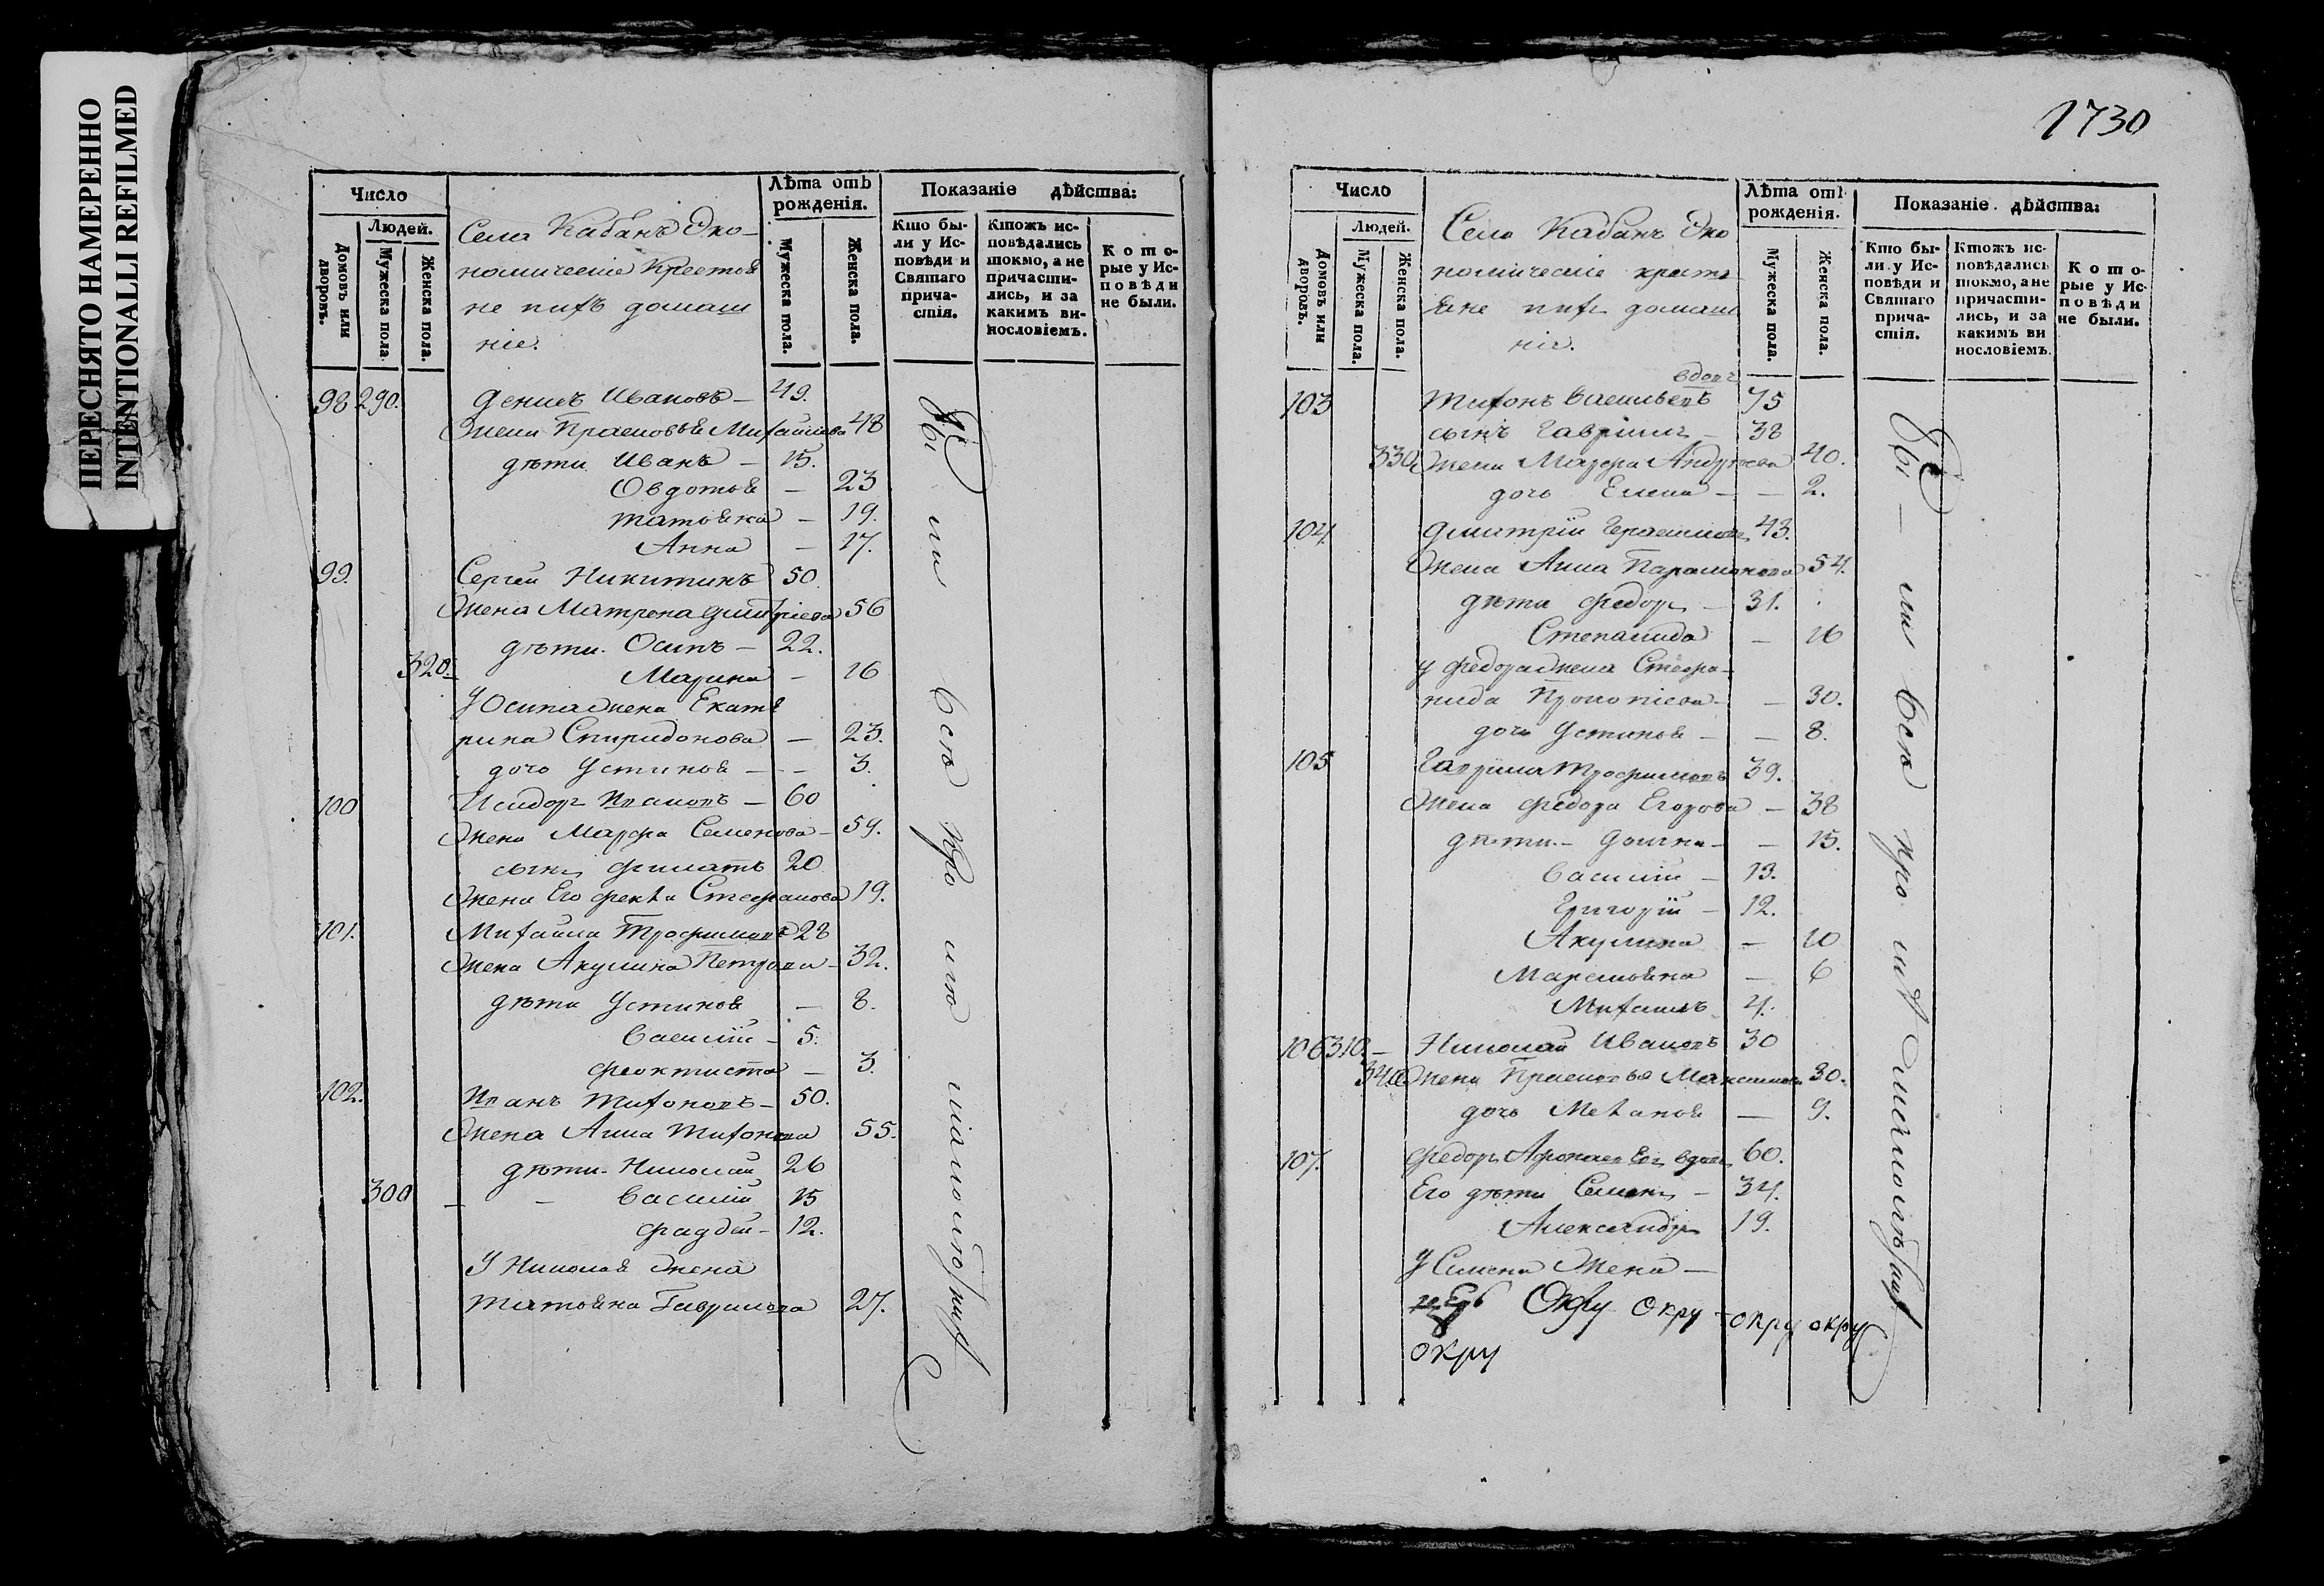 ПЕРЕСНЯТО НАМЕРЕННО
INTENTIONALLI REFILMED
Число
Людей.
Домовъ или дворовъ.
Мужеска пола.
Женска пола.
Села Кабанъ Эко-
номическіе Крестья
не ихъ домаш
ніе.
Лѣта отъ рожденія.
Мужеска пола.
Женска пола.
Показаніе дѣйства:
Кто бы-
ли у Ис-
повѣди и
Святаго
прича-
стія.
Ктожъ ис-
повѣдались
токмо, а не
причасти-
лись, и за
какимъ ви-
нословіемъ.
Кото-
рые у Ис-
повѣди
не были.
98 290. Денисъ Ивановъ — 49.
Жена Прасковья Михайлова 48
дѣти Иванъ — 15.
Овдотья — 23
Татьяна — 19.
Анна — 17.
99. Сергей Никитинъ 50
Жена Матрена Дмитріева 56
дѣти Осипъ — 22.
320. Марина — 16
У Осипа жена Екате
рина Спиридонова — 23.
дочь Устинья — 3.
100 Исидоръ Ивановъ — 60
Жена Марфа Семенова — 59.
сынъ Филатъ 20
Жена Его Фекла Стефанова 19.
101. Михайла Трофимовъ 28
Жена Акулина Петрова — 32.
дѣти Устинья — 8.
Василій — 5.
Феоктиста — 3.
102. Иванъ Тихоновъ — 50.
Жена Анна Тихонова 55.
дѣти Николай 26
300 — — Василій 15
Фаддей — 12.
У Николая Жена
Татьяна Гаврилова 27.
1730
Число
Людей.
Домовъ или дворовъ.
Мужеска пола.
Женска пола.
Села Кабанъ Эко
номическіе кресть
яне ихъ домаш
ніе.
Лѣта отъ рожденія.
Мужеска пола.
Женска пола.
Показаніе дѣйства:
Кто бы-
ли у Ис-
повѣди и
Святаго
прича-
стія.
Ктожъ ис-
повѣдались
токмо, а не
причасти-
лись, и за
какимъ ви
нословіемъ.
Кото-
рые у Ис-
повѣди
не были.
вдовъ
103 Тихонъ Васильевъ 75
сынъ Гаврилъ — 38
330 Жена Марфа Андреева 40.
дочь Елена — — 2.
104 Дмитрій Герасимовъ 43.
Жена Анна Парамонова 54.
дѣти Федоръ — 31.
Степанида — 16
у Федора жена Стефа-
нида Прокопіева — — 30.
дочь Устинья — — 8.
105 Гаврила Трофимовъ 39.
Жена Федора Егорова — 38
дѣти — Домна — — 15.
Василій — 13.
Григорій — 12.
Акулина — 10
Маремьяна — 6
Михаилъ 4.
106 310. — Николай Ивановъ 30
340 Жена Прасковья Максимова 30.
дочь Меланья — 9.
107. Федоръ вдовъ 60.
Его дѣти Семенъ — 34.
Александръ 19.
У Семена Жена —
Окру окру окру окру
окру